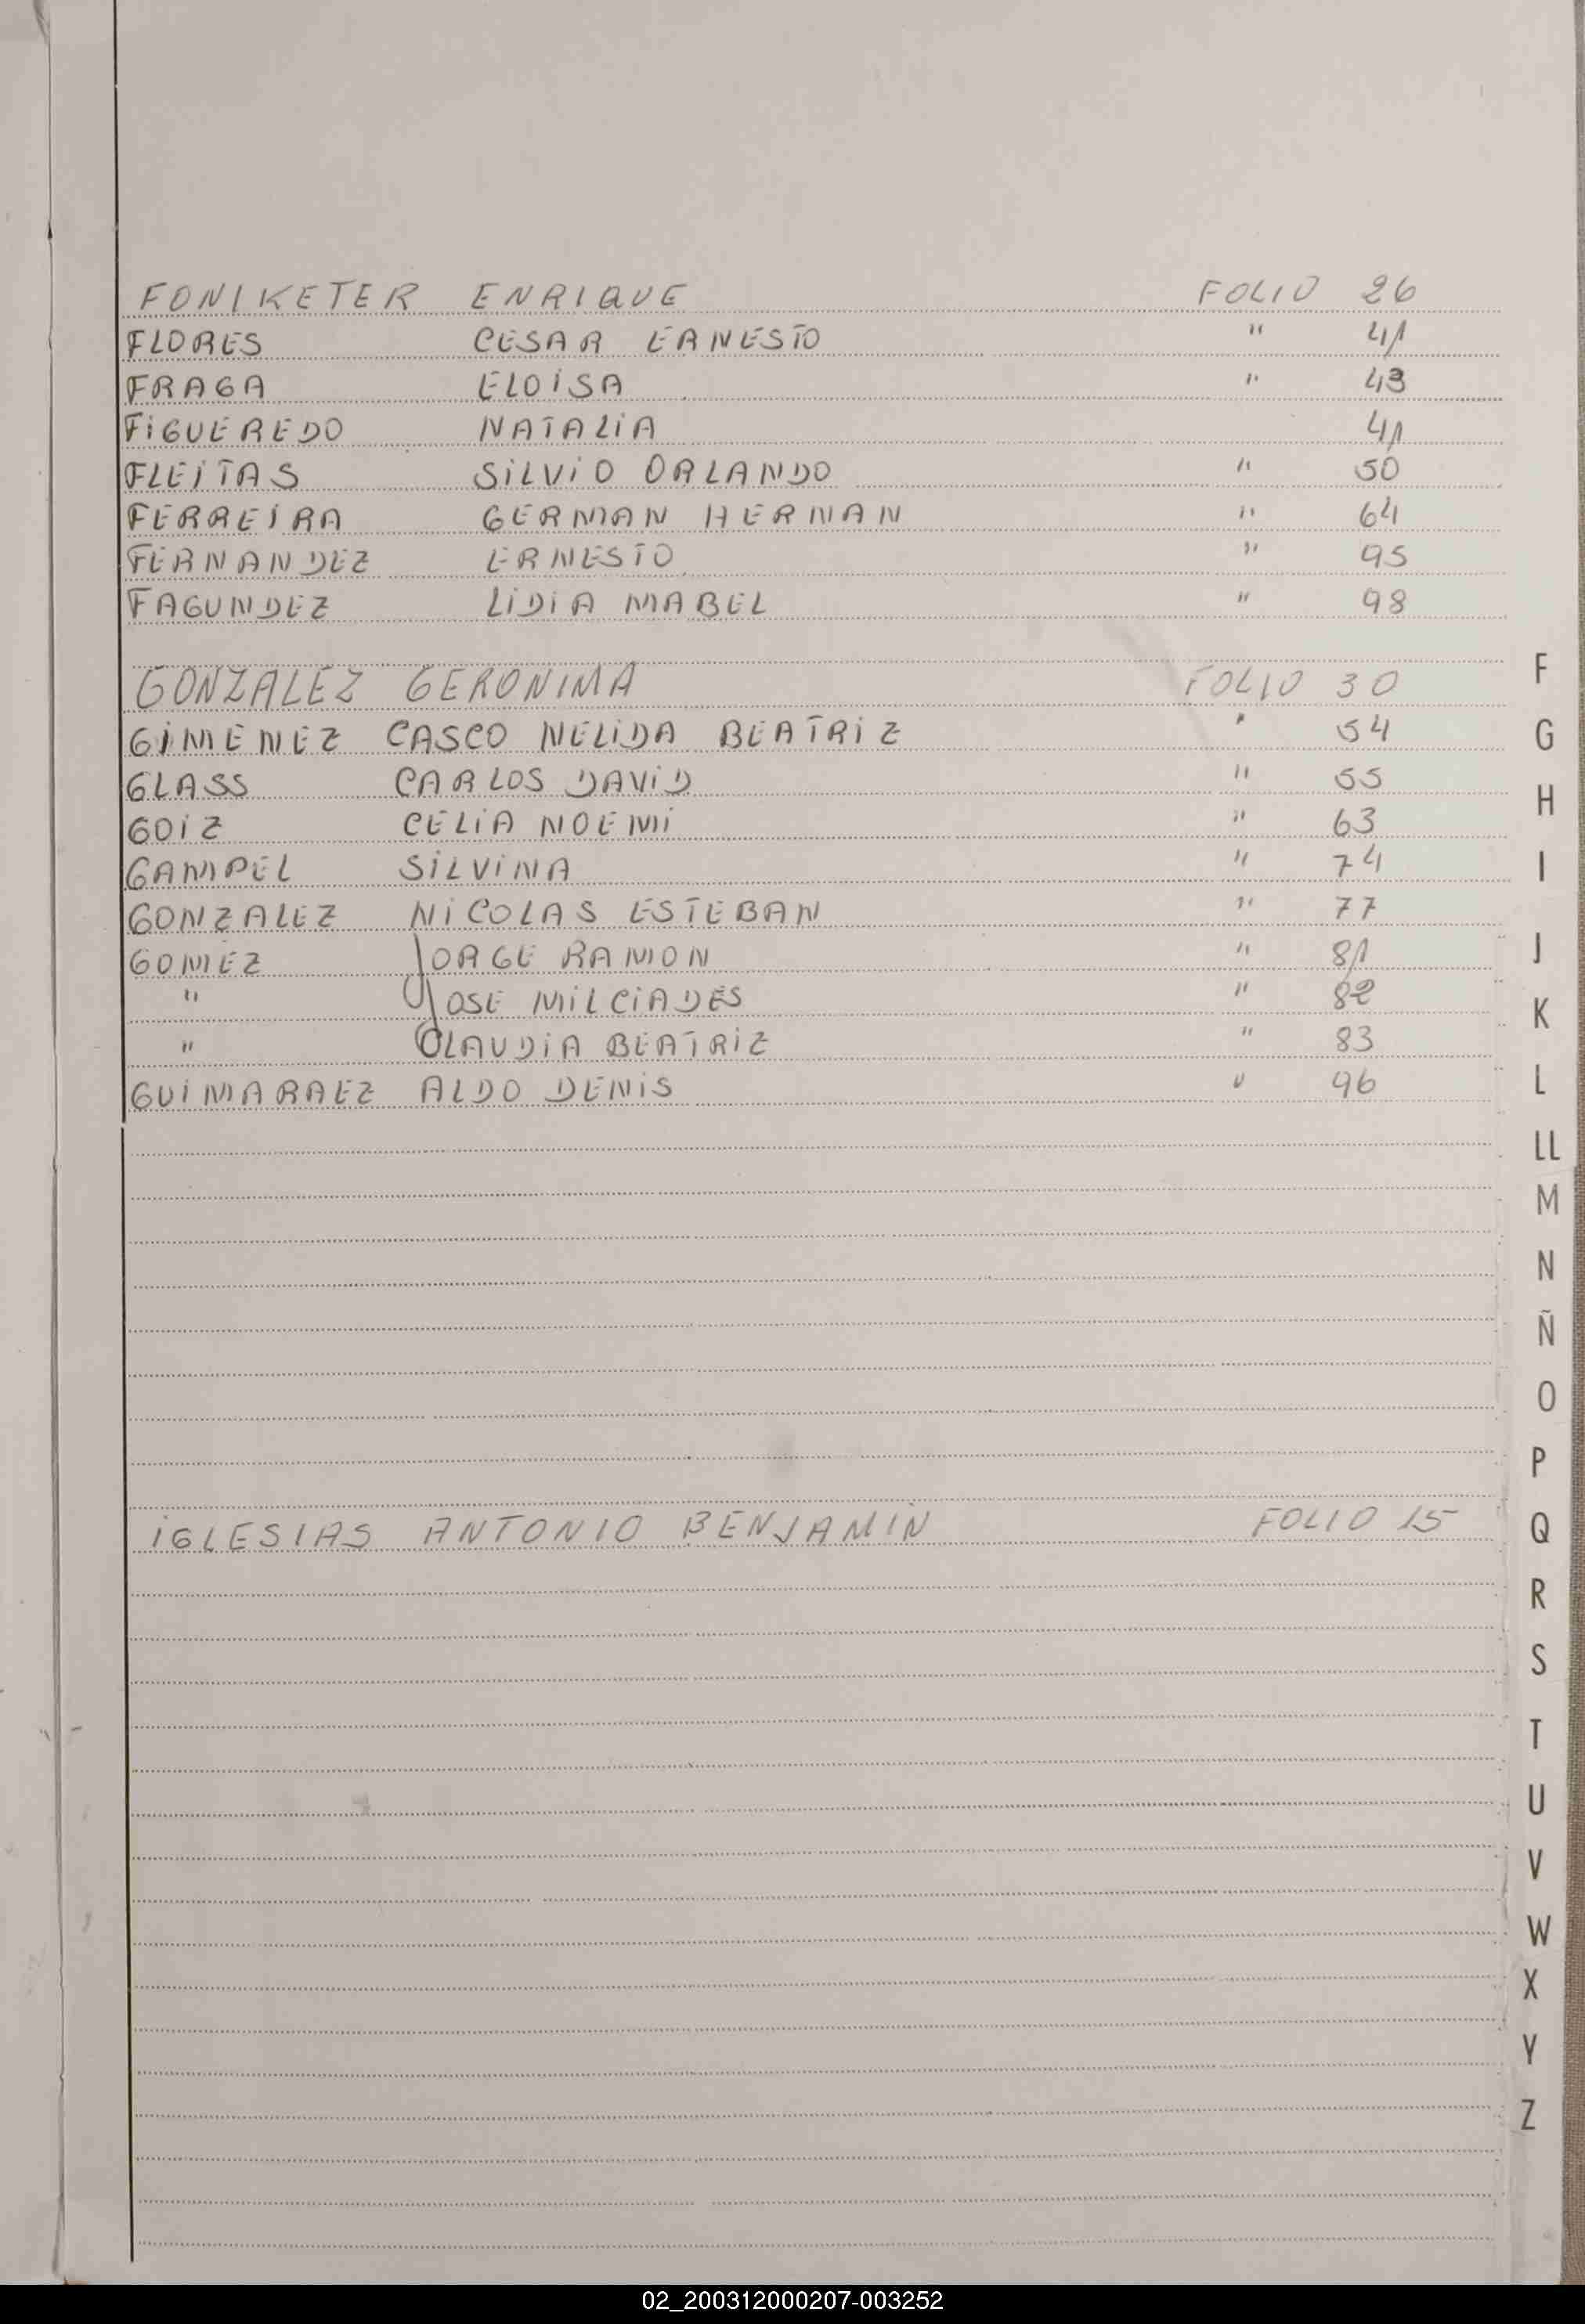 FONIKETER ENRIQUE FOLIO 26
FLORES CESAR ERNESTO " 41
FRAGA ELOISA " 43
FIGUEREDO NATALIA 41
FLEITAS SILVIO ORLANDO " 50
FERREIRA GERMAN HERNAN " 64
FERNANDEZ ERNESTO " 95
FAGUNDEZ LIDIA MABEL " 98
GONZALEZ GERONIMA FOLIO 30
GIMENEZ CASCO NELIDA BEATRIZ " 54
GLASS CARLOS DAVID " 55
GOIZ CELIA NOEMI " 63
GAMPEL SILVINA " 74
GONZALEZ NICOLAS ESTEBAN " 77
GOMEZ JORGE RAMON " 81
" JOSE MILCIADES " 82
" CLAUDIA BEATRIZ " 83
GUIMARAEZ ALDO DENIS " 96
IGLESIAS ANTONIO BENJAMIN FOLIO 15
F
G
H
I
J
K
L
LL
M
N
Ñ
O
P
Q
R
S
T
U
V
W
X
Y
Z
02_200312000207-003252